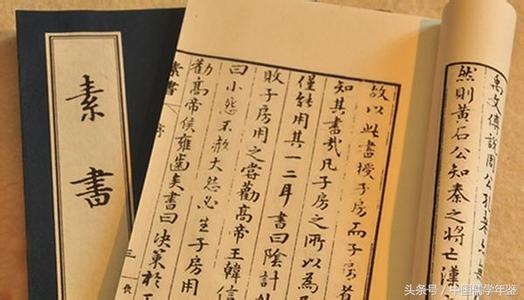 禹文傅說周公孔老
然則黃石公知秦之將亡漢
故以此書授子房而子房
知其書哉凡子房之所以為
僅能用其一二耳書曰陰計
敗子房用之嘗勸高帝王韓信
曰小怨不赦大怨必生子房用
勸高帝侯雍齒矣書曰決策於
素書 序 三
素書
头条号 / 中国儒学年鉴